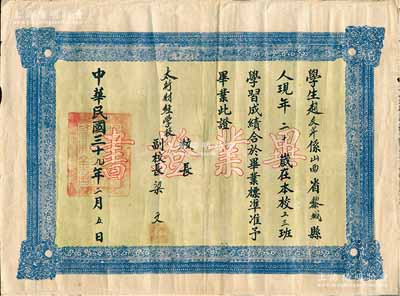 學生趙文昇係山西省黎城縣
人現年二十歲在本校工三班
學習成績合於畢業標準准予
畢業此證
太行財經學校校長
副校長梁文
中華民國三十九年二月五日
畢業證書